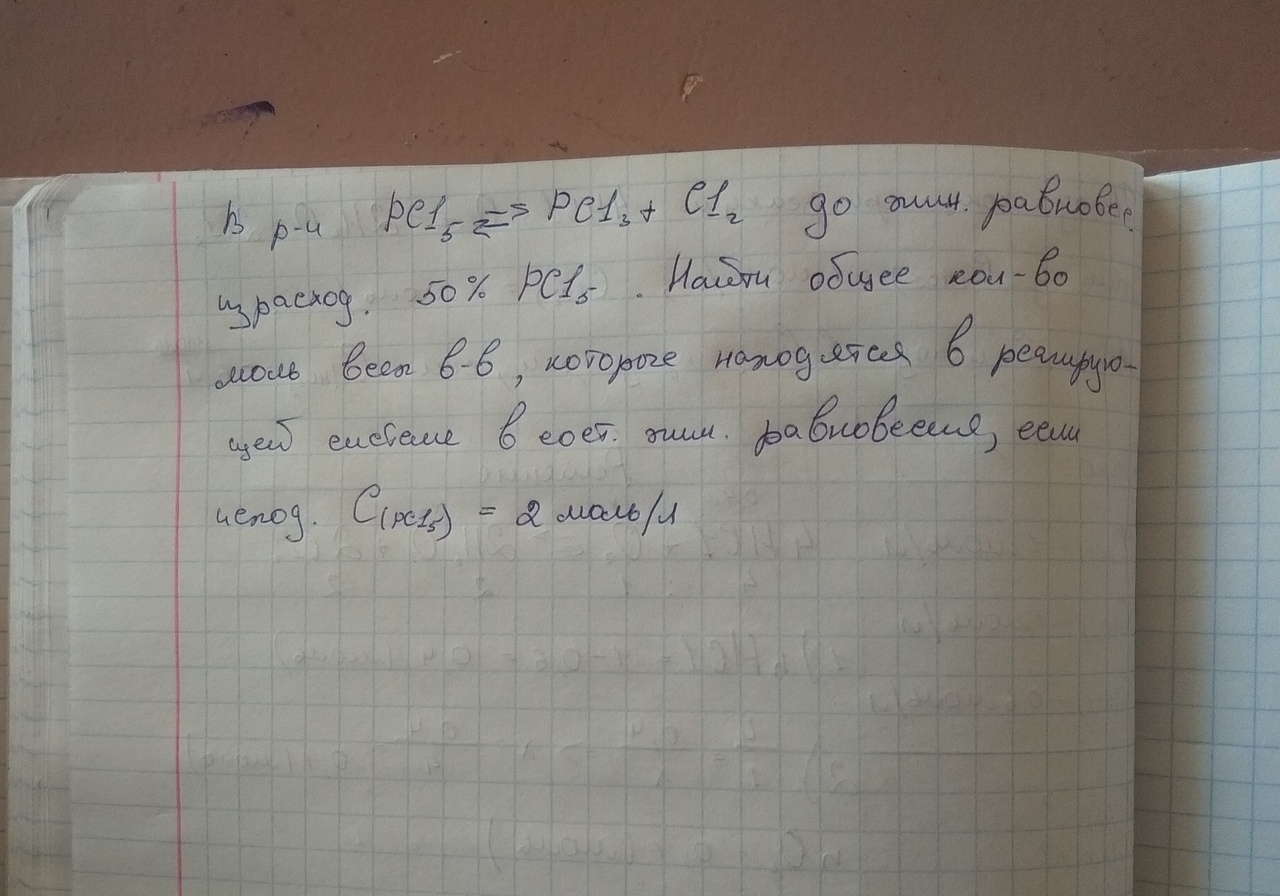 В р-и PCl₅ ⇄ PCl₃ + Cl₂ до хим. равновес
израсход. 50% PCl₅. Найти общее кол-во
моль всех в-в, которые находятся в реагирую-
щей системе в сост. хим. равновесия, если
исход. C(PCl₅) = 2 моль/л